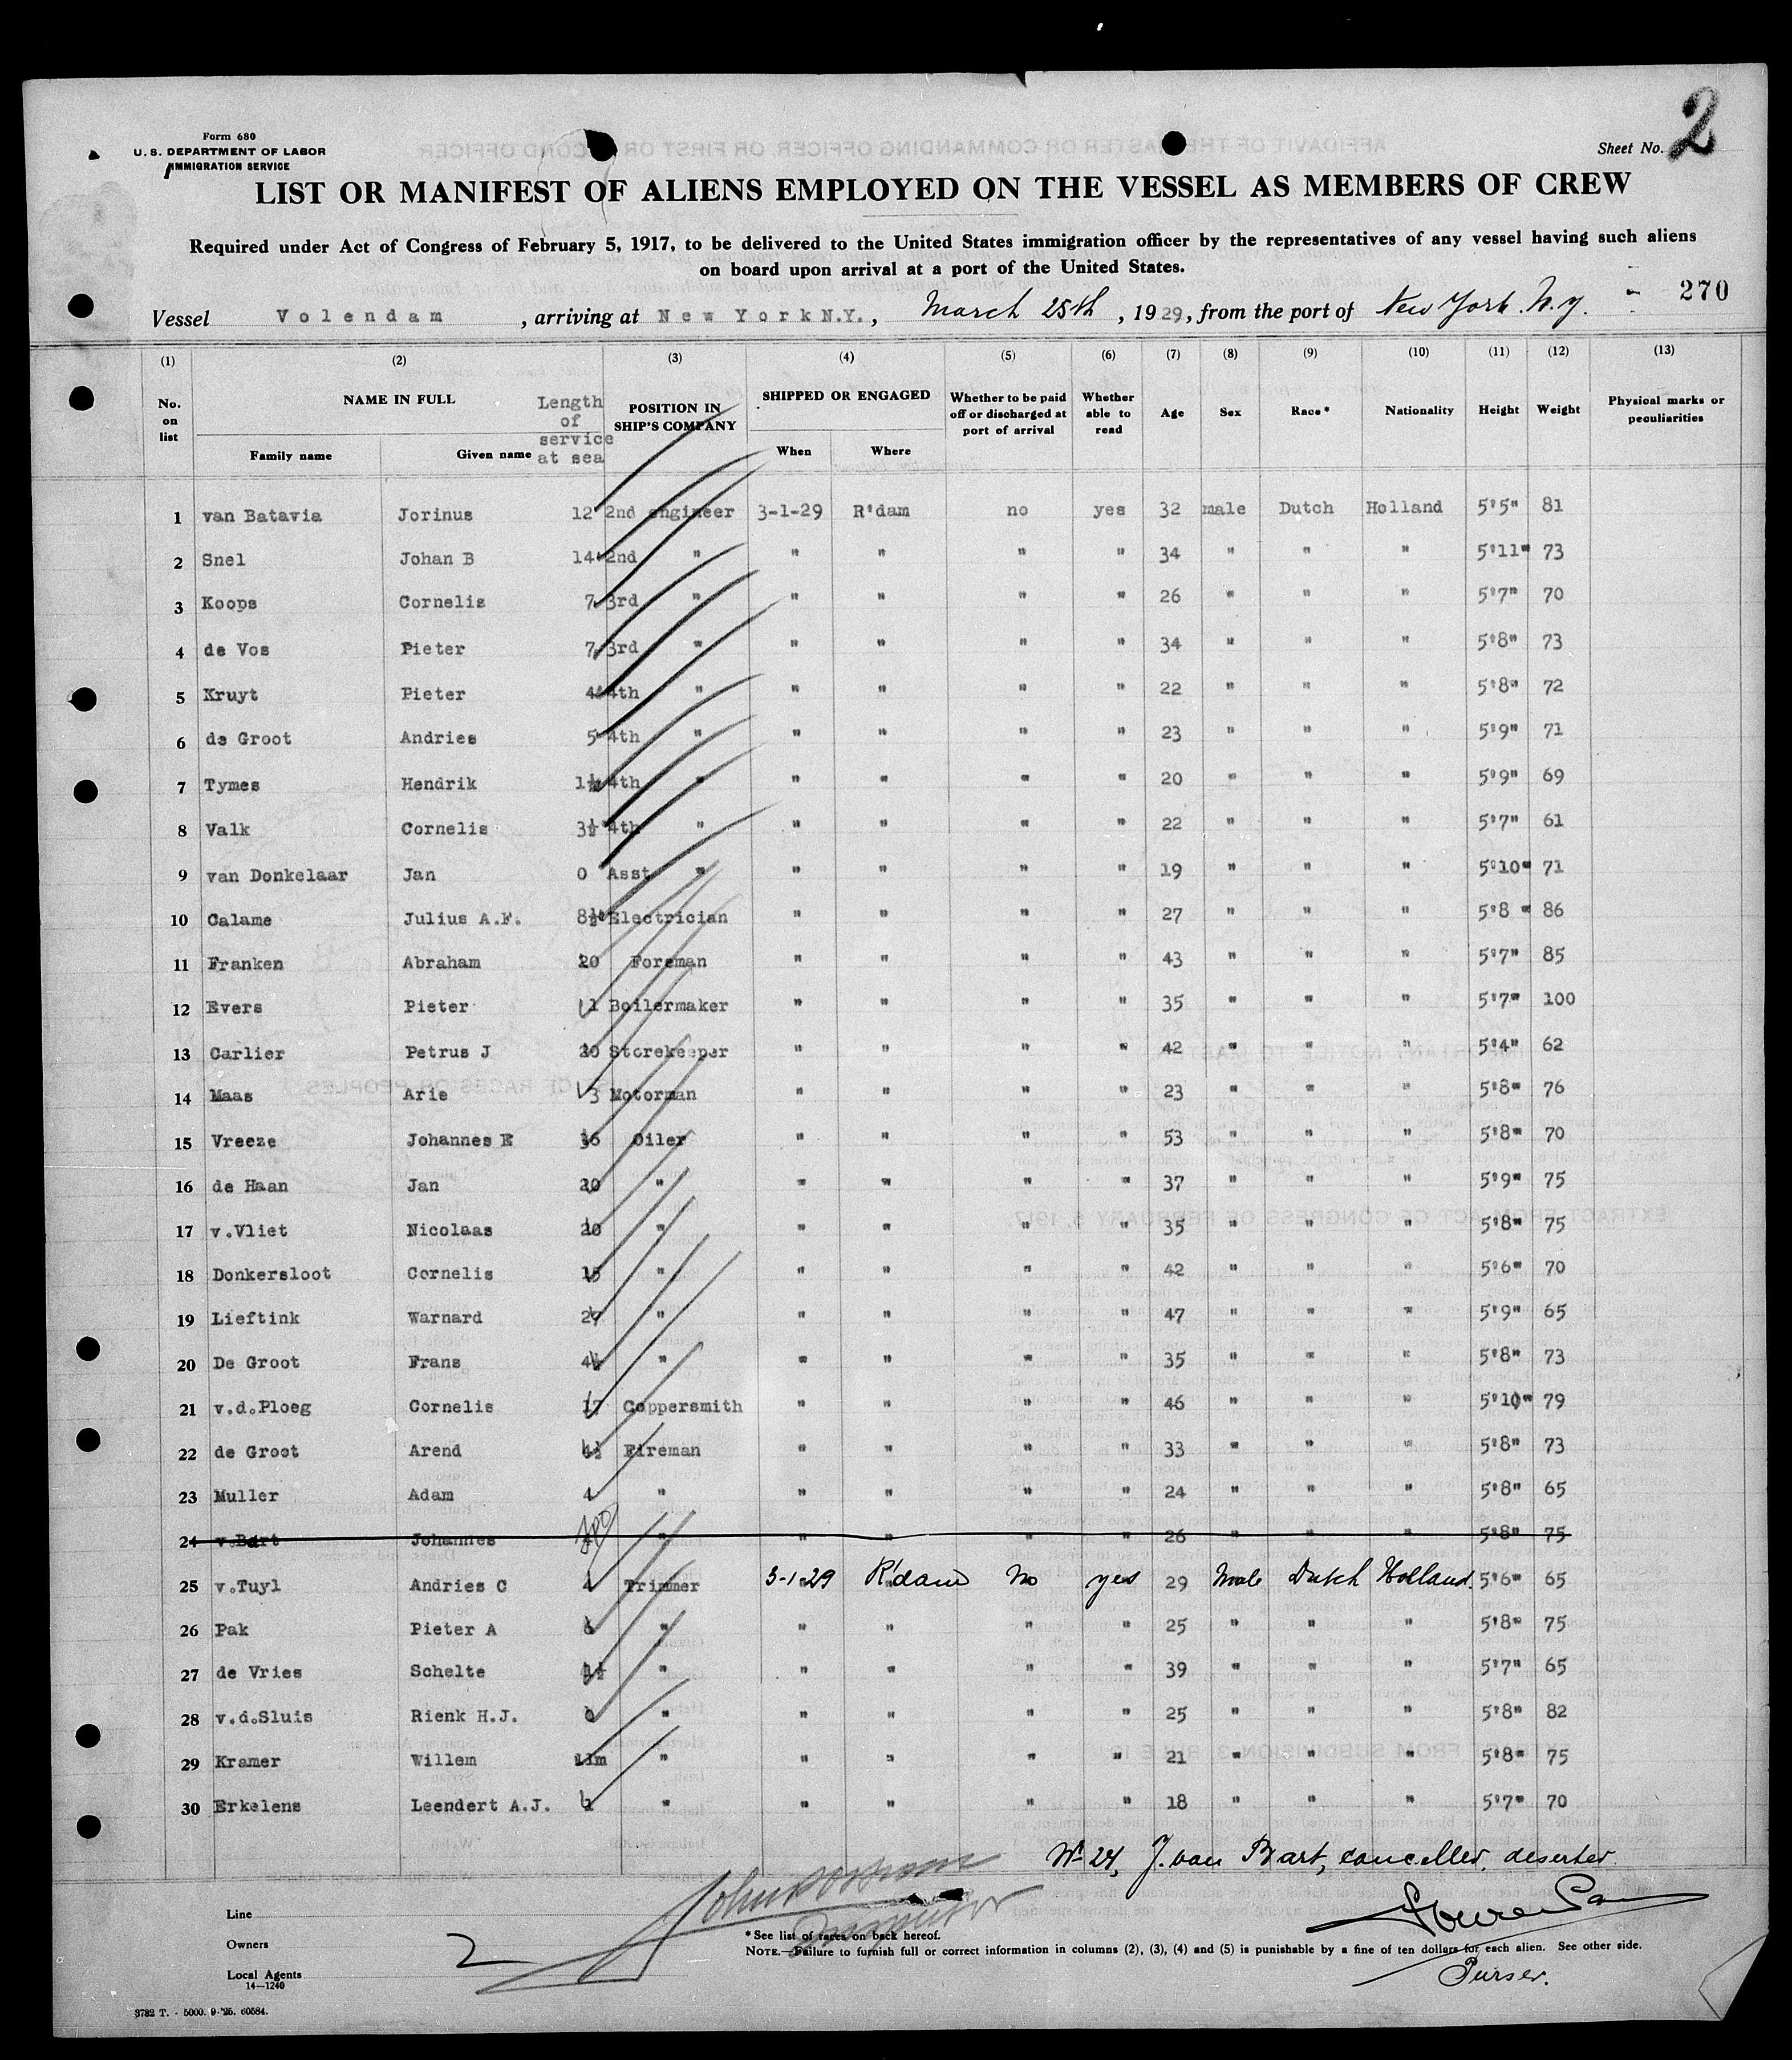 Form 680
U. S. DEPARTMENT OF LABOR
IMMIGRATION SERVICE
Sheet No. 2
LIST OR MANIFEST OF ALIENS EMPLOYED ON THE VESSEL AS MEMBERS OF CREW
Required under Act of Congress of February 5, 1917, to be delivered to the United States immigration officer by the representatives of any vessel having such aliens
on board upon arrival at a port of the United States.
270
Vessel Volendam, arriving at New York N.Y., March 25th, 1929, from the port of New York. N.Y.
(1) (2) (3) (4) (5) (6) (7) (8) (9) (10) (11) (12) (13)
No. on list NAME IN FULL Family name Given name Length of service at sea POSITION IN SHIP'S COMPANY SHIPPED OR ENGAGED When Where Whether to be paid off or discharged at port of arrival Whether able to read Age Sex Race* Nationality Height Weight Physical marks or peculiarities
1 van Batavia Jorinus 12 2nd engineer 3-1-29 R'dam no yes 32 male Dutch Holland 5'5" 81
2 Snel Johan B 14 2nd " " " " " 34 " " " 5'11" 73
3 Koops Cornelis 7 3rd " " " " " 26 " " " 5'7" 70
4 de Vos Pieter 7 3rd " " " " " 34 " " " 5'8" 73
5 Kruyt Pieter 4 4th " " " " " 22 " " " 5'8" 72
6 de Groot Andries 5 4th " " " " " 23 " " " 5'9" 71
7 Tymes Hendrik 1½ 4th " " " " " 20 " " " 5'9" 69
8 Valk Cornelis 3½ 4th " " " " " 22 " " " 5'7" 61
9 van Donkelaar Jan 0 Asst " " " " " 19 " " " 5'10" 71
10 Calame Julius A.F. 8½ Electrician " " " " 27 " " " 5'8" 86
11 Franken Abraham 20 Foreman " " " " 43 " " " 5'7" 85
12 Evers Pieter 11 Boilermaker " " " " 35 " " " 5'7" 100
13 Carlier Petrus J 20 Storekeeper " " " " 42 " " " 5'4" 62
14 Maas Arie 3 Motorman " " " " 23 " " " 5'8" 76
15 Vreeze Johannes E 36 Oiler " " " " 53 " " " 5'8" 70
16 de Haan Jan 20 " " " " " 37 " " " 5'9" 75
17 v.Vliet Nicolaas 20 " " " " " 35 " " " 5'8" 75
18 Donkersloot Cornelis 15 " " " " " 42 " " " 5'6" 70
19 Lieftink Warnard 27 " " " " " 47 " " " 5'9" 65
20 De Groot Frans 4½ " " " " " 35 " " " 5'8" 73
21 v.d.Ploeg Cornelis 17 Coppersmith " " " " 46 " " " 5'10" 79
22 de Groot Arend 4½ Fireman " " " " 33 " " " 5'8" 73
23 Muller Adam 4 " " " " " 24 " " " 5'8" 65
24 v.Bart Johannes " " " " 26 " " " 5'8" 75
25 v.Tuyl Andries C 4 Trimmer 3-1-29 R'dam No yes 29 Male Dutch Holland. 5'6" 65
26 Pak Pieter A 6 " " " " " 25 " " " 5'8" 75
27 de Vries Schelte " " " " " 39 " " " 5'7" 65
28 v.d.Sluis Rienk H.J. 0 " " " " " 25 " " " 5'8" 82
29 Kramer Willem 11m " " " " " 21 " " " 5'8" 75
30 Erkelens Leendert A.J. 1 " " " " " 18 " " " 5'7" 70
No 24, J. van Bart, cancelled, deserter
Line
Owners
Local Agents
14—1240
2
Inspector
*See list of races on back hereof.
NOTE.—Failure to furnish full or correct information in columns (2), (3), (4) and (5) is punishable by a fine of ten dollars for each alien. See other side.
Purser.
3782 T. - 5000. 9-'25. 60584.